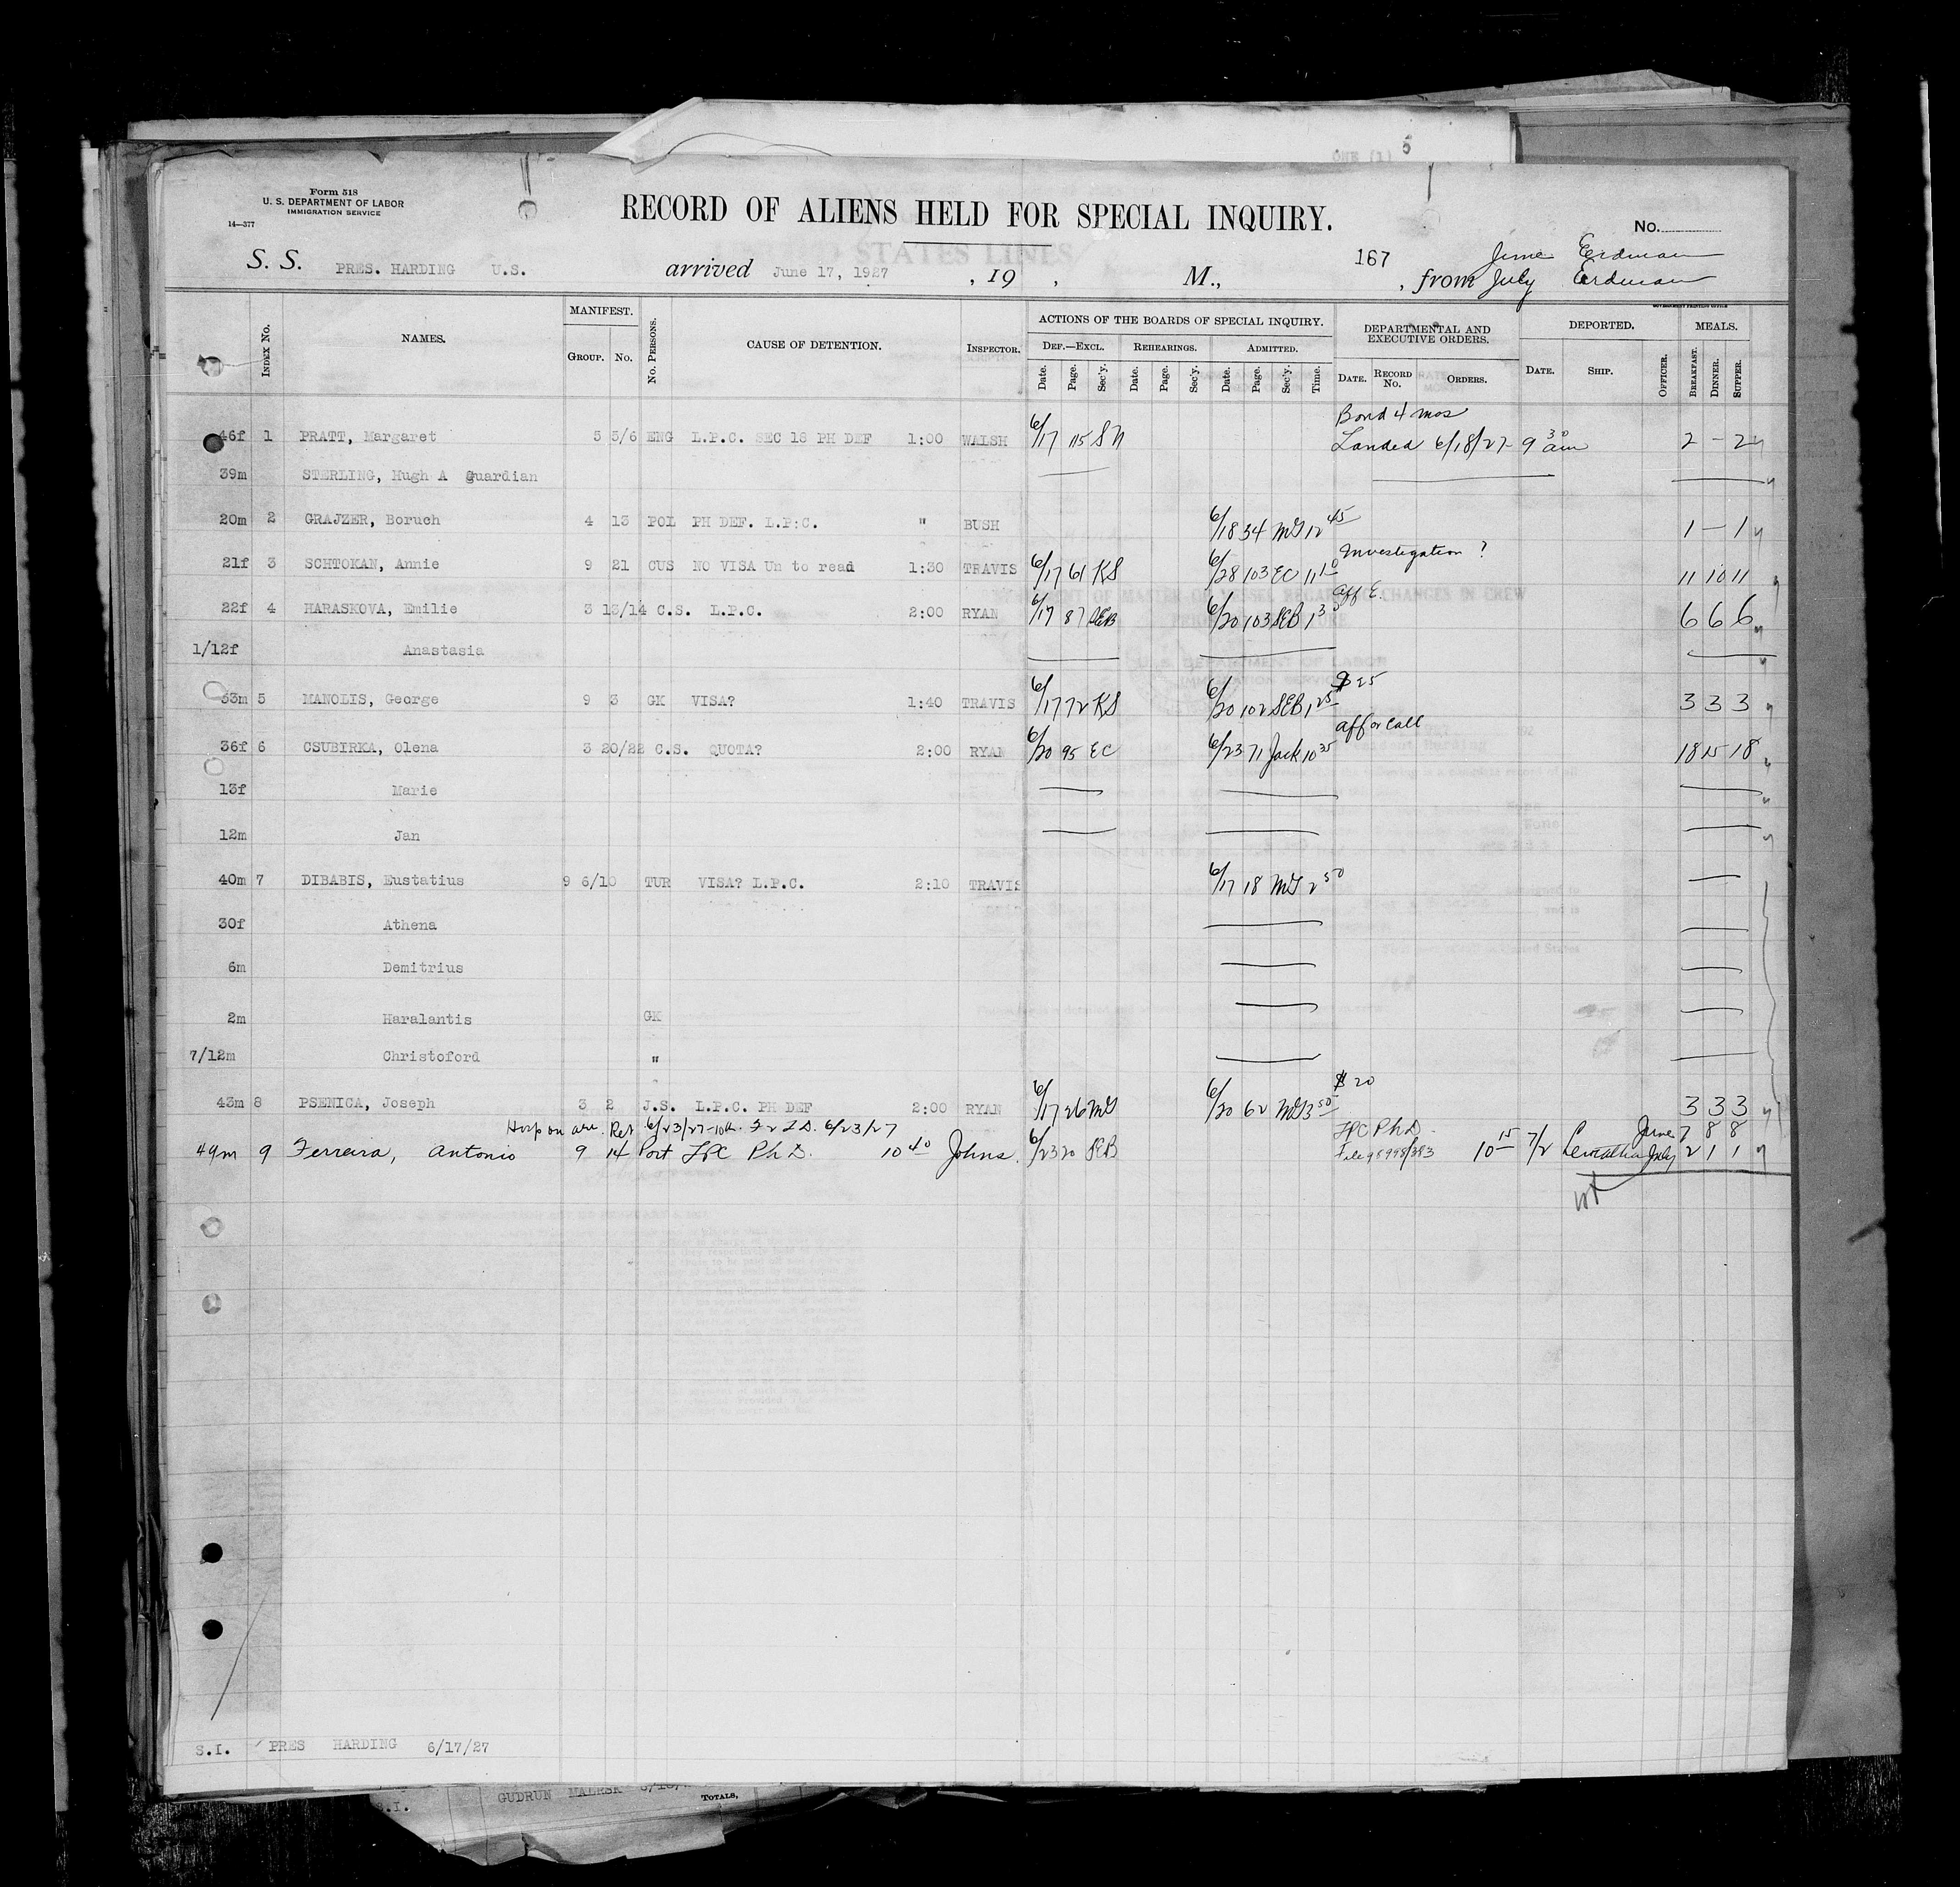 ONE (1) 5
Form 518
U. S. DEPARTMENT OF LABOR
IMMIGRATION SERVICE
14—377
RECORD OF ALIENS HELD FOR SPECIAL INQUIRY.
No.
S. S. PRES. HARDING U.S. arrived June 17, 1927 , 19 , M., 167 , from June Erdman
July Erdman
Index No. NAMES. MANIFEST. Group. No. No. Persons. CAUSE OF DETENTION. Inspector. ACTIONS OF THE BOARDS OF SPECIAL INQUIRY. DEPARTMENTAL AND EXECUTIVE ORDERS. DEPORTED. MEALS.
Def.—Excl. Rehearings. Admitted.
Date. Page. Sec'y. Date. Page. Sec'y. Date. Page. Sec'y. Time. Date. Record No. Orders. Date. Ship. Officer. Breakfast. Dinner. Supper.
Bond 4 mos
46f 1 PRATT, Margaret 5 5/6 ENG L.P.C. SEC 18 PH DEF 1:00 WALSH 6/17 115 SN Landed 6/18/27 9 30 am 2 - 2
39m STERLING, Hugh A Guardian
20m 2 GRAJZER, Boruch 4 13 POL PH DEF. L.P.C. " BUSH 6/18 34 McG 12 45 1 - 1
Investigation ?
21f 3 SCHTOKAN, Annie 9 21 CUS NO VISA Un to read 1:30 TRAVIS 6/17 61 KS 6/28 103 EC 11 10 11 10 11
aff E.
22f 4 HARASKOVA, Emilie 3 13/14 C.S. L.P.C. 2:00 RYAN 6/17 87 SEB 6/20 103 SEB 1 30 6 6 6
1/12f Anastasia
$25
33m 5 MANOLIS, George 9 3 GK VISA? 1:40 TRAVIS 6/17 72 KS 6/20 102 SEB 1 25 3 3 3
aff or call
36f 6 CSUBIRKA, Olena 3 20/22 C.S. QUOTA? 2:00 RYAN 6/20 95 EC 6/23 71 Jack 10 35 18 15 18
13f Marie
12m Jan
40m 7 DIBABIS, Eustatius 9 6/10 TUR VISA? L.P.C. 2:10 TRAVIS 6/17 18 McG 2 50
30f Athena
6m Demitrius
2m Haralantis GK
7/12m Christoford "
$20
43m 8 PSENICA, Joseph 3 2 J.S. L.P.C. PH DEF 2:00 RYAN 6/17 26 McG 6/20 62 McG 3 50 3 3 3
Hosp on arr. Rel 6/23/27 6/23/27 LPC Ph D. June 7 8 8
49m 9 Ferreira, Antonio 9 14 Port LPC Ph D. 10 40 Johns. 6/23 20 SEB File 98998/383 10 15 7/2 Leviathan July 2 1 1
S.I. PRES HARDING 6/17/27
S.I. GUDRUN MAERSK
Totals,